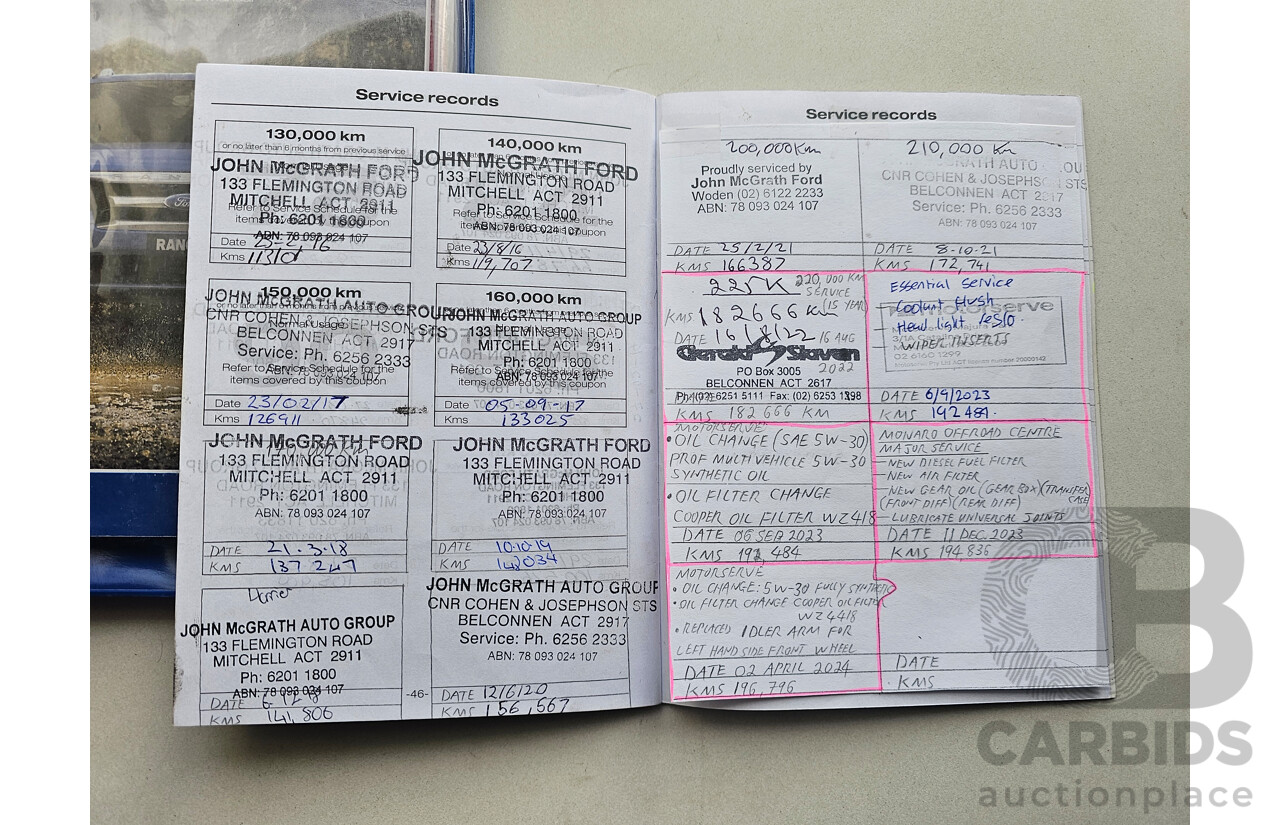 Service records
130,000 km
or no later than 6 months from previous service
JOHN McGRATH FORD
133 FLEMINGTON ROAD
MITCHELL ACT 2911
Refer to Service Schedule for the
Ph: 6201 1800
items covered by this coupon
ABN: 78 093 024 107
Date
Kms
140,000 km
JOHN McGRATH FORD
133 FLEMINGTON ROAD
MITCHELL ACT 2911
Refer to Service Schedule for the
Ph: 6201 1800
ABN: 78 093 024 107
Date 23/8/16
Kms 119,707
150,000 km
JOHN McGRATH AUTO GROUP
CNR COHEN & JOSEPHSON STS
Normal Usage
BELCONNEN ACT 2917
Service: Ph. 6256 2333
Refer to Service Schedule for the
ABN: 78 093 024 107
items covered by this coupon
Date 23/02/17
Kms 126911
160,000 km
JOHN McGRATH AUTO GROUP
133 FLEMINGTON ROAD
MITCHELL ACT 2911
Ph: 6201 1800
Refer to Service Schedule for the
ABN: 78 093 024 107
items covered by this coupon
Date 05-09-17
Kms 133025
JOHN McGRATH FORD
133 FLEMINGTON ROAD
MITCHELL ACT 2911
Ph: 6201 1800
ABN: 78 093 024 107
DATE 21.3.18
KMS 137247
JOHN McGRATH FORD
133 FLEMINGTON ROAD
MITCHELL ACT 2911
Ph: 6201 1800
ABN: 78 093 024 107
DATE 10.10.19
KMS 142034
JOHN McGRATH AUTO GROUP
133 FLEMINGTON ROAD
MITCHELL ACT 2911
Ph: 6201 1800
ABN: 78 093 024 107
DATE
KMS 141,806
JOHN McGRATH AUTO GROUP
CNR COHEN & JOSEPHSON STS
BELCONNEN ACT 2917
Service: Ph. 6256 2333
ABN: 78 093 024 107
DATE 12/6/20
KMS 156,567
-46-
Service records
200,000Km
Proudly serviced by
John McGrath Ford
Woden (02) 6122 2233
ABN: 78 093 024 107
DATE 25/2/21
KMS 166387
210,000 Km
CNR COHEN & JOSEPHSON STS
BELCONNEN ACT
Service: Ph. 6256 2333
ABN: 78 093 024 107
DATE 8-10-21
KMS 172,741
225K 220,000 KM
SERVICE
(15 YEAR)
KMS 182666 Km
DATE 16/8/22 16 AUG
2022
Gerald Slaven
PO Box 3005
BELCONNEN ACT 2617
Ph: (02) 6251 5111 Fax: (02) 6253 1398
KMS 182 666 KM
Essential Service
Coolant flush
Head light
WIPER INSERTS
02 6160 1299
DATE 6/9/2023
KMS 192484.
MOTORSERVE
• OIL CHANGE (SAE 5W-30)
PROF MULTI VEHICLE 5W-30
SYNTHETIC OIL
• OIL FILTER CHANGE
COOPER OIL FILTER WZ418
DATE 06 SEP 2023
KMS 192,484
MONARO OFFROAD CENTRE
MAJOR SERVICE
- NEW DIESEL FUEL FILTER
- NEW AIR FILTER
- NEW GEAR OIL (GEAR BOX)(TRANSFER CASE)
(FRONT DIFF)(REAR DIFF)
- LUBRICATE UNIVERSAL JOINTS
DATE 11 DEC 2023
KMS 194 836
MOTORSERVE
• OIL CHANGE: 5W-30 FULLY SYNTHETIC
• OIL FILTER CHANGE COOPER OIL FILTER
WZ4418
• REPLACED IDLER ARM FOR
LEFT HAND SIDE FRONT WHEEL
DATE 02 APRIL 2024
KMS 196,796
DATE
KMS
CB
CARBIDS
auctionplace